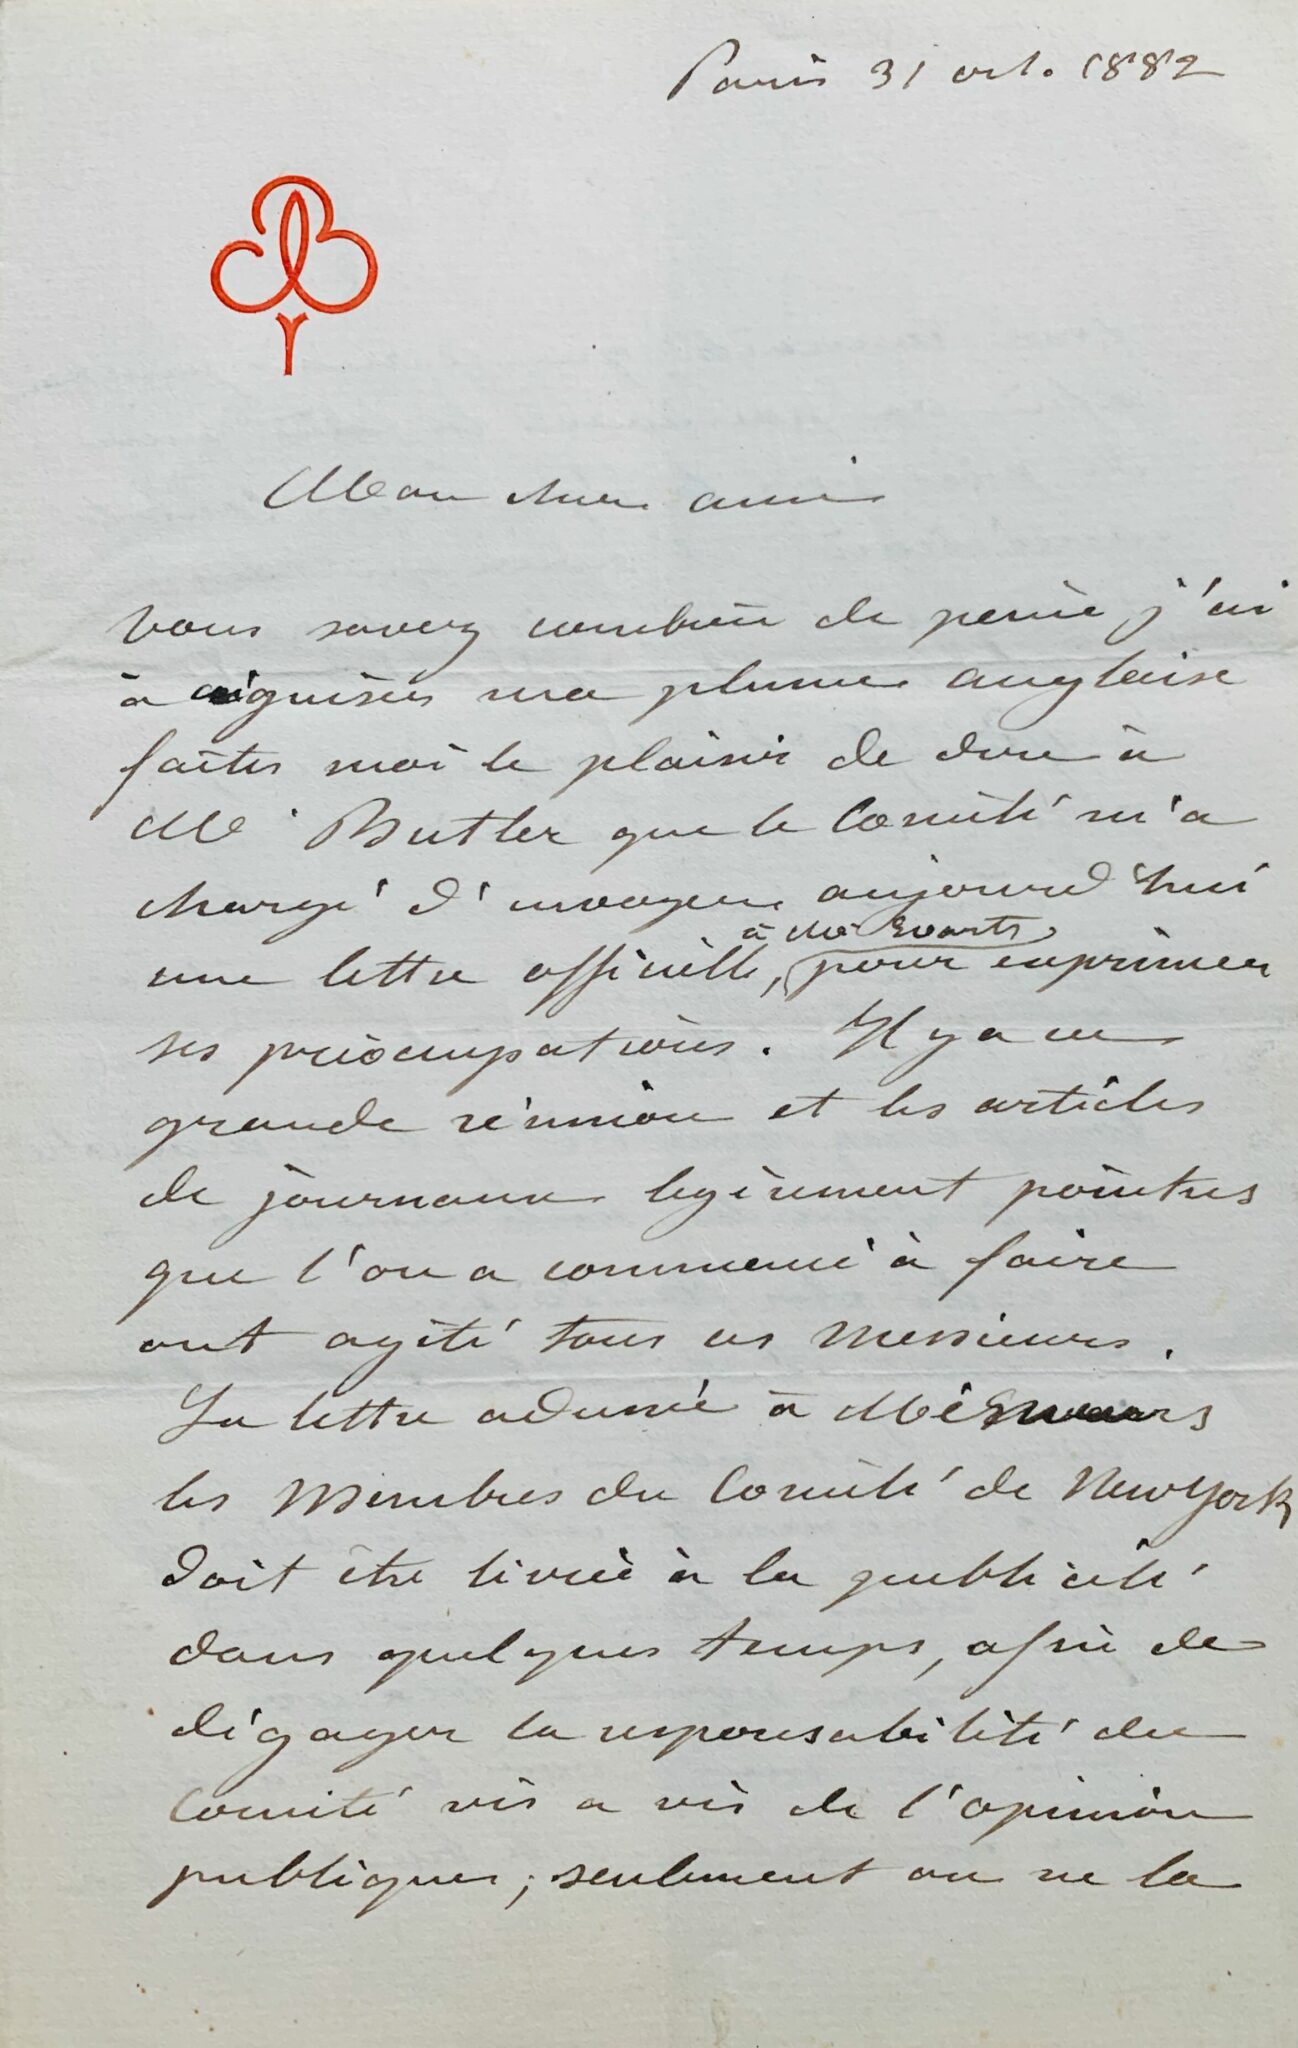 Paris 31 oct. 1882
Mon cher ami
vous savez combien de peine j'ai
à aiguiser ma plume anglaise
faites moi le plaisir de dire à
Mr Butler que le Comité m'a
chargé d'envoyer aujourd'hui
à Mr Evarts
une lettre officielle, pour exprimer
ses préoccupations. Il y a eu
grande réunion et les articles
de journaux legèrement pointus
que l'on a commencé à faire
ont agité tous ces Messieurs.
La lettre adressée à
les Membres du Comité de New York
doit être livrée à la publicité
dans quelques temps, afin de
dégager la responsabilité du
Comité vis a vis de l'opinion
publique; seulement on ne la